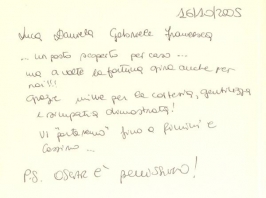 16/10/2005
Luca Daniela Gabriele Francesca
... un posto scoperto per caso ...
ma a volte la fortuna gira anche per
noi!!!
Grazie mille per la cortesia, gentilezza
e simpatia dimostrata!
Vi "porteremo" fino a Rimini e
Cassino ...
P.S. OSCAR E' bellissimo!